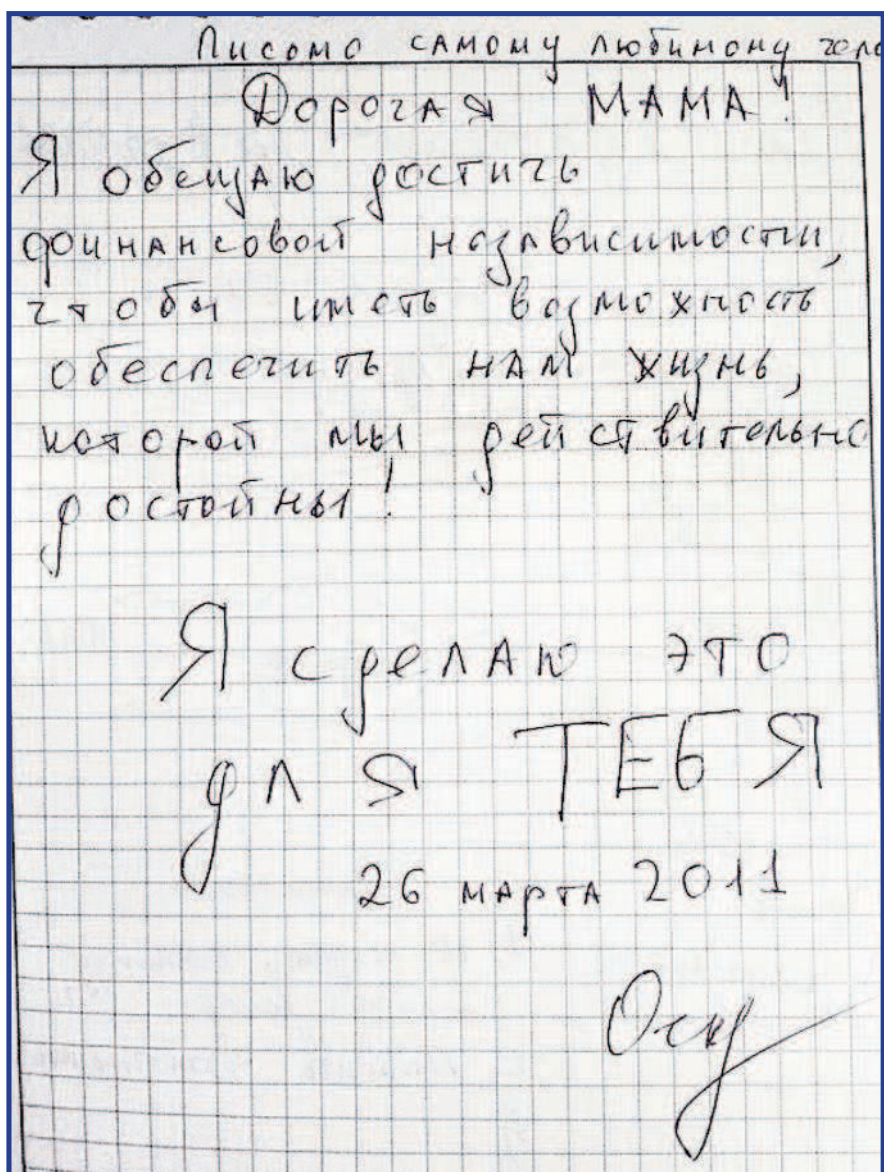 Письмо самому любимому чело
Дорогая МАМА!
Я обещаю достичь
финансовой независимости,
чтобы иметь возможность
обеспечить нам жизнь,
которой мы действительно
достойны!
Я сделаю это
для ТЕБЯ
26 марта 2011